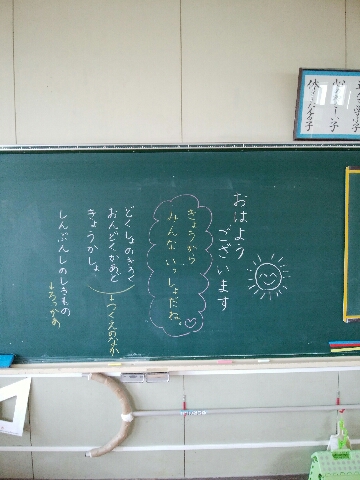 おはよう
ございます
きょうから
みんな いっしょだね。
どくしょのきろく
おんどくかあど
きょうかしょ
↓つくえのなか
しんぶんしのしきもの
↓ろっかあ